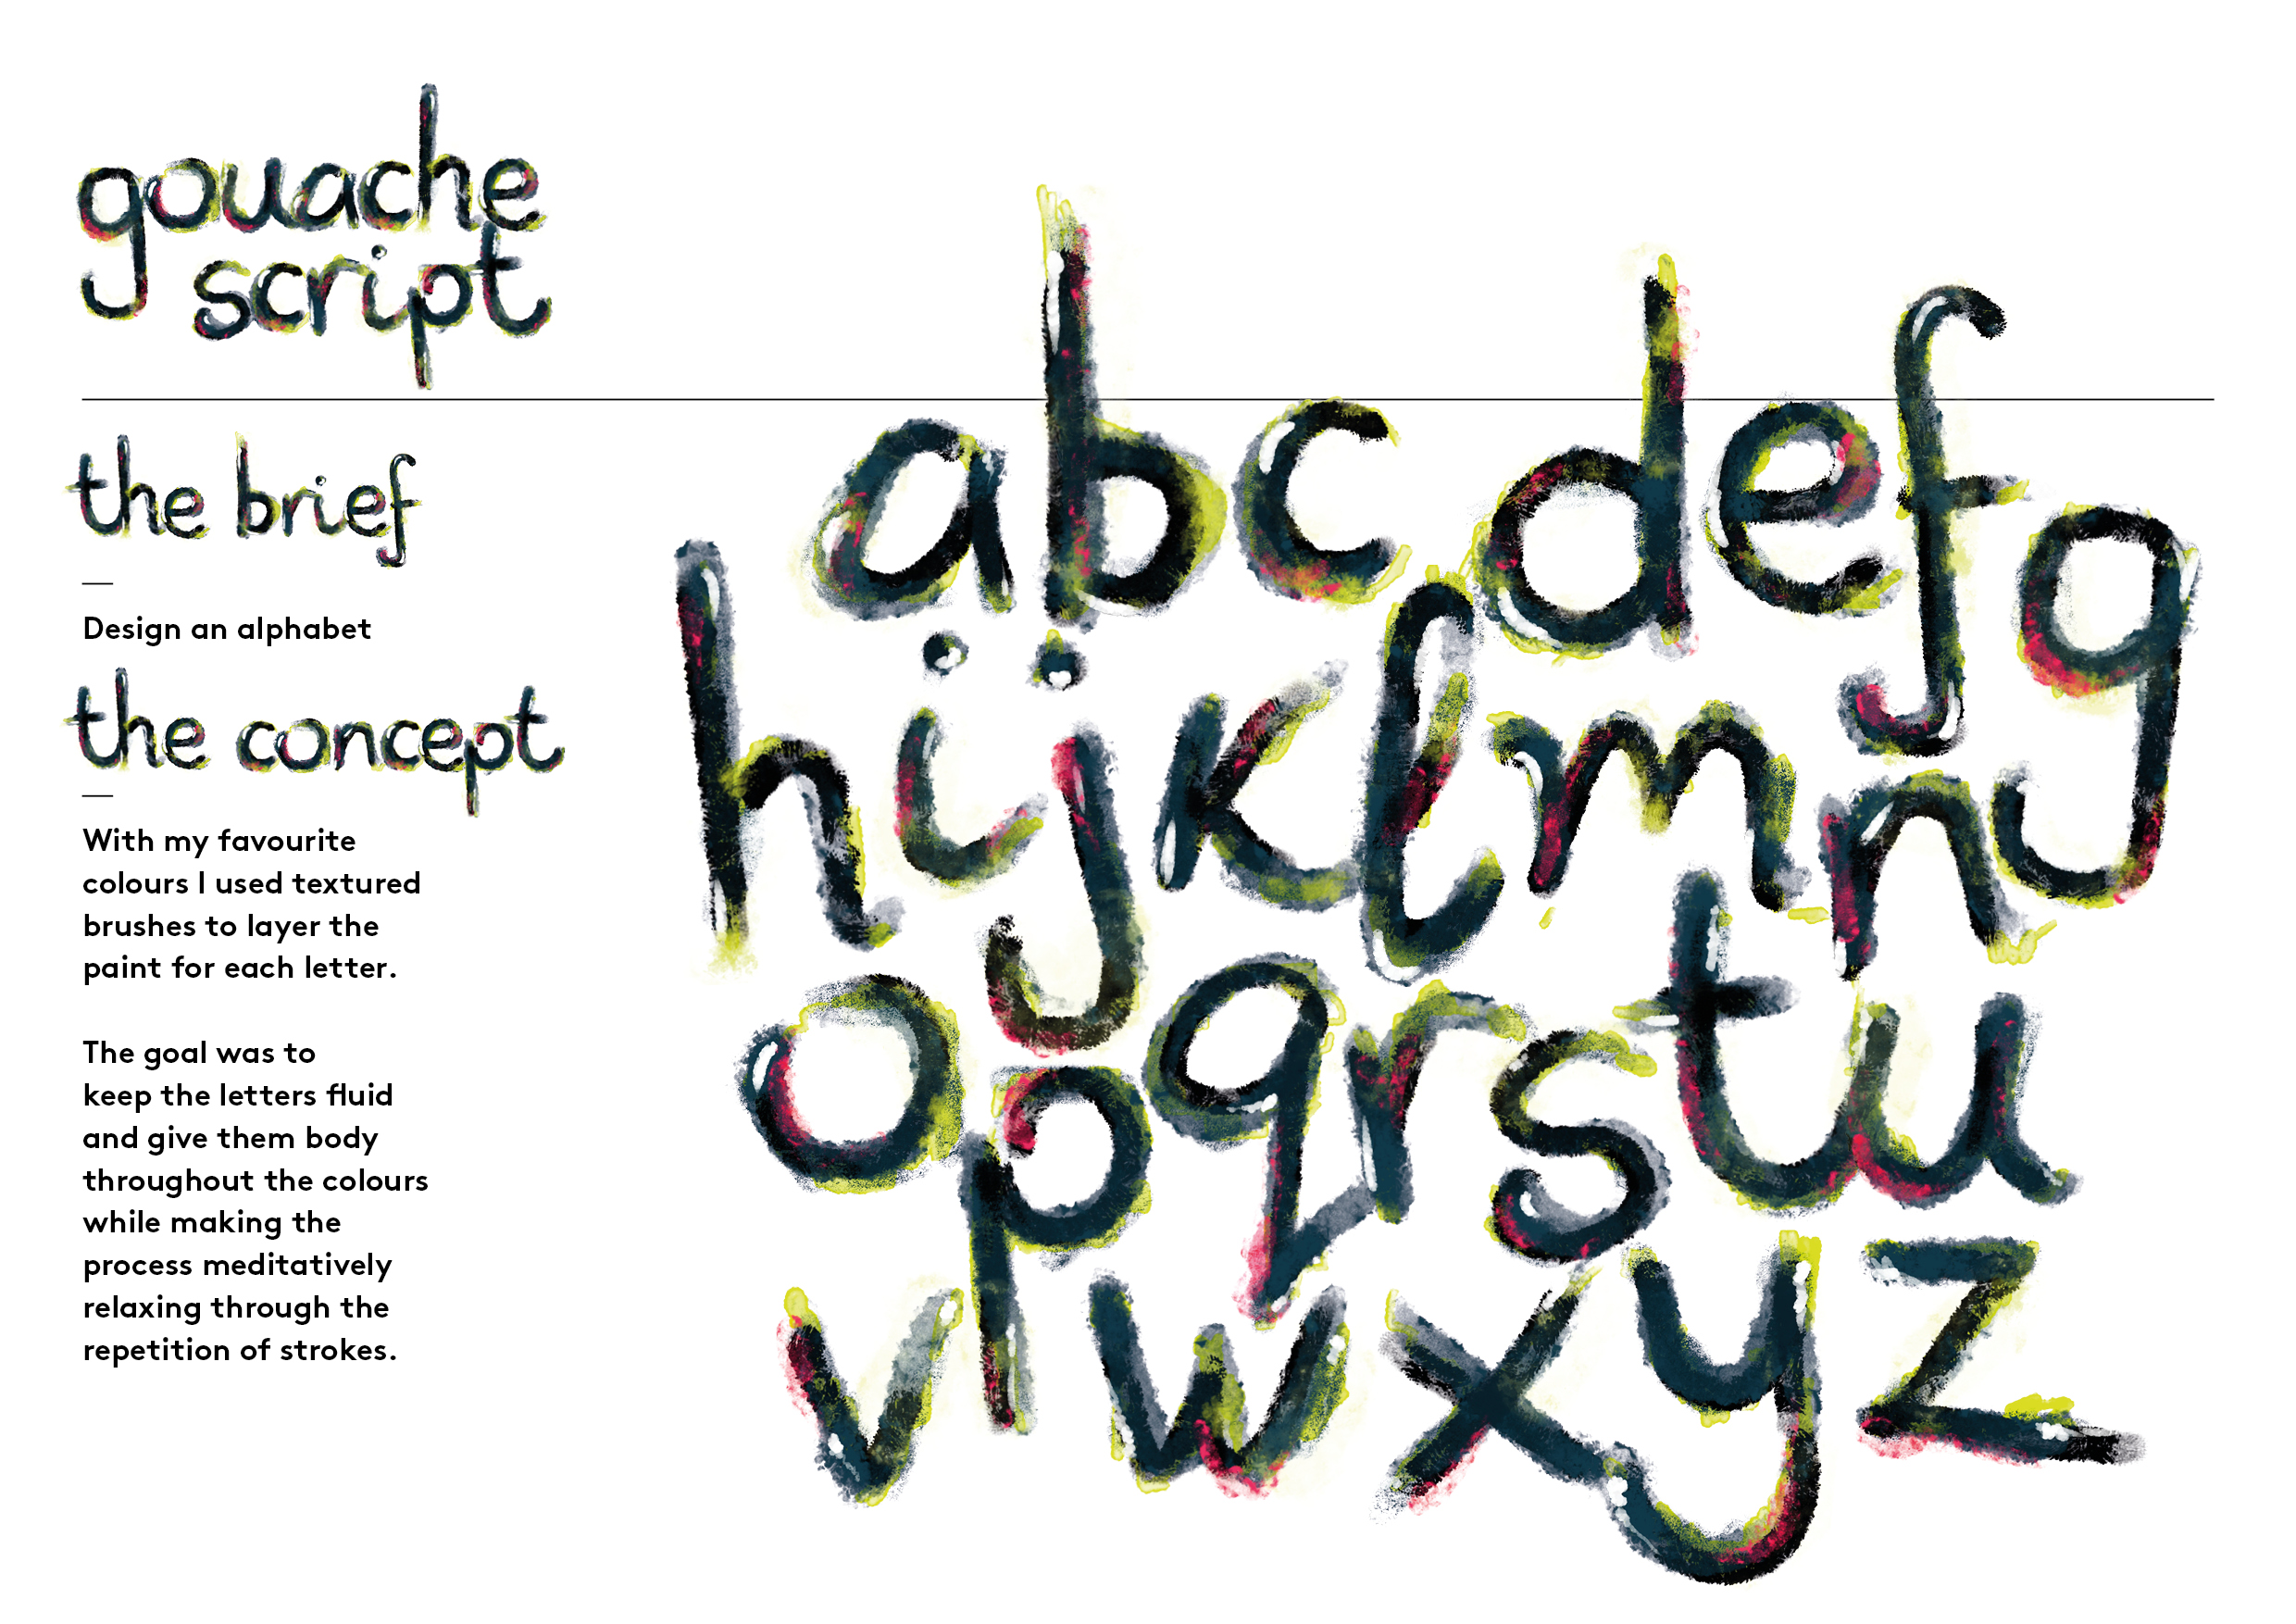 gouache
script
the brief
Design an alphabet
the concept
With my favourite
colours I used textured
brushes to layer the
paint for each letter.
The goal was to
keep the letters fluid
and give them body
throughout the colours
while making the
process meditatively
relaxing through the
repetition of strokes.
abcdefg
hijklmn
opqrstu
vwxyz